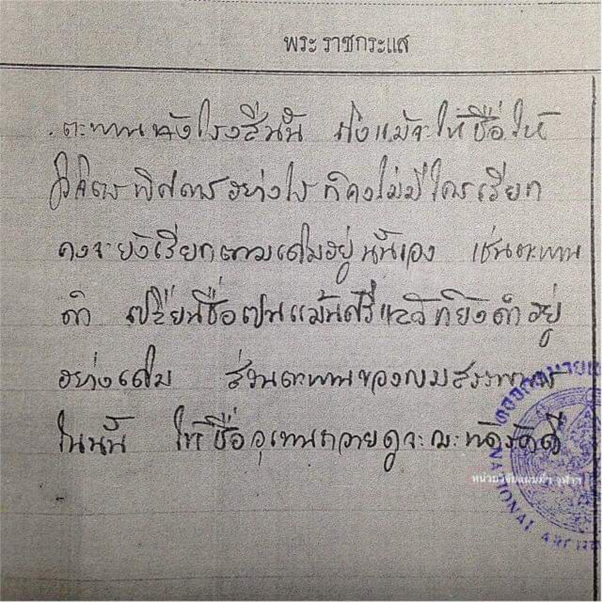 พระราชกระแส
ตะพานหลังโรงสีนั้น ถึงแม้จะให้ชื่อให้
วิจิตรพิศดารอย่างไร ก็คงไม่มีใครเรียก
คงจะยังเรียกตามเดิมอยู่นั้นเอง เช่นตะพาน
ดำ เปลี่ยนชื่อเปนแม้นศรีแล้วก็ยังดำอยู่
อย่างเดิม ส่วนตะพานของกรมสรรพากร
ในนั้น ให้ชื่ออุเทนถวายดูจะฉะหัดรัดดี
หน่วยวิจัยแผนที่ฯ จุฬาฯ
หอจดหมายเหตุ
NATIONAL ARCHIVES